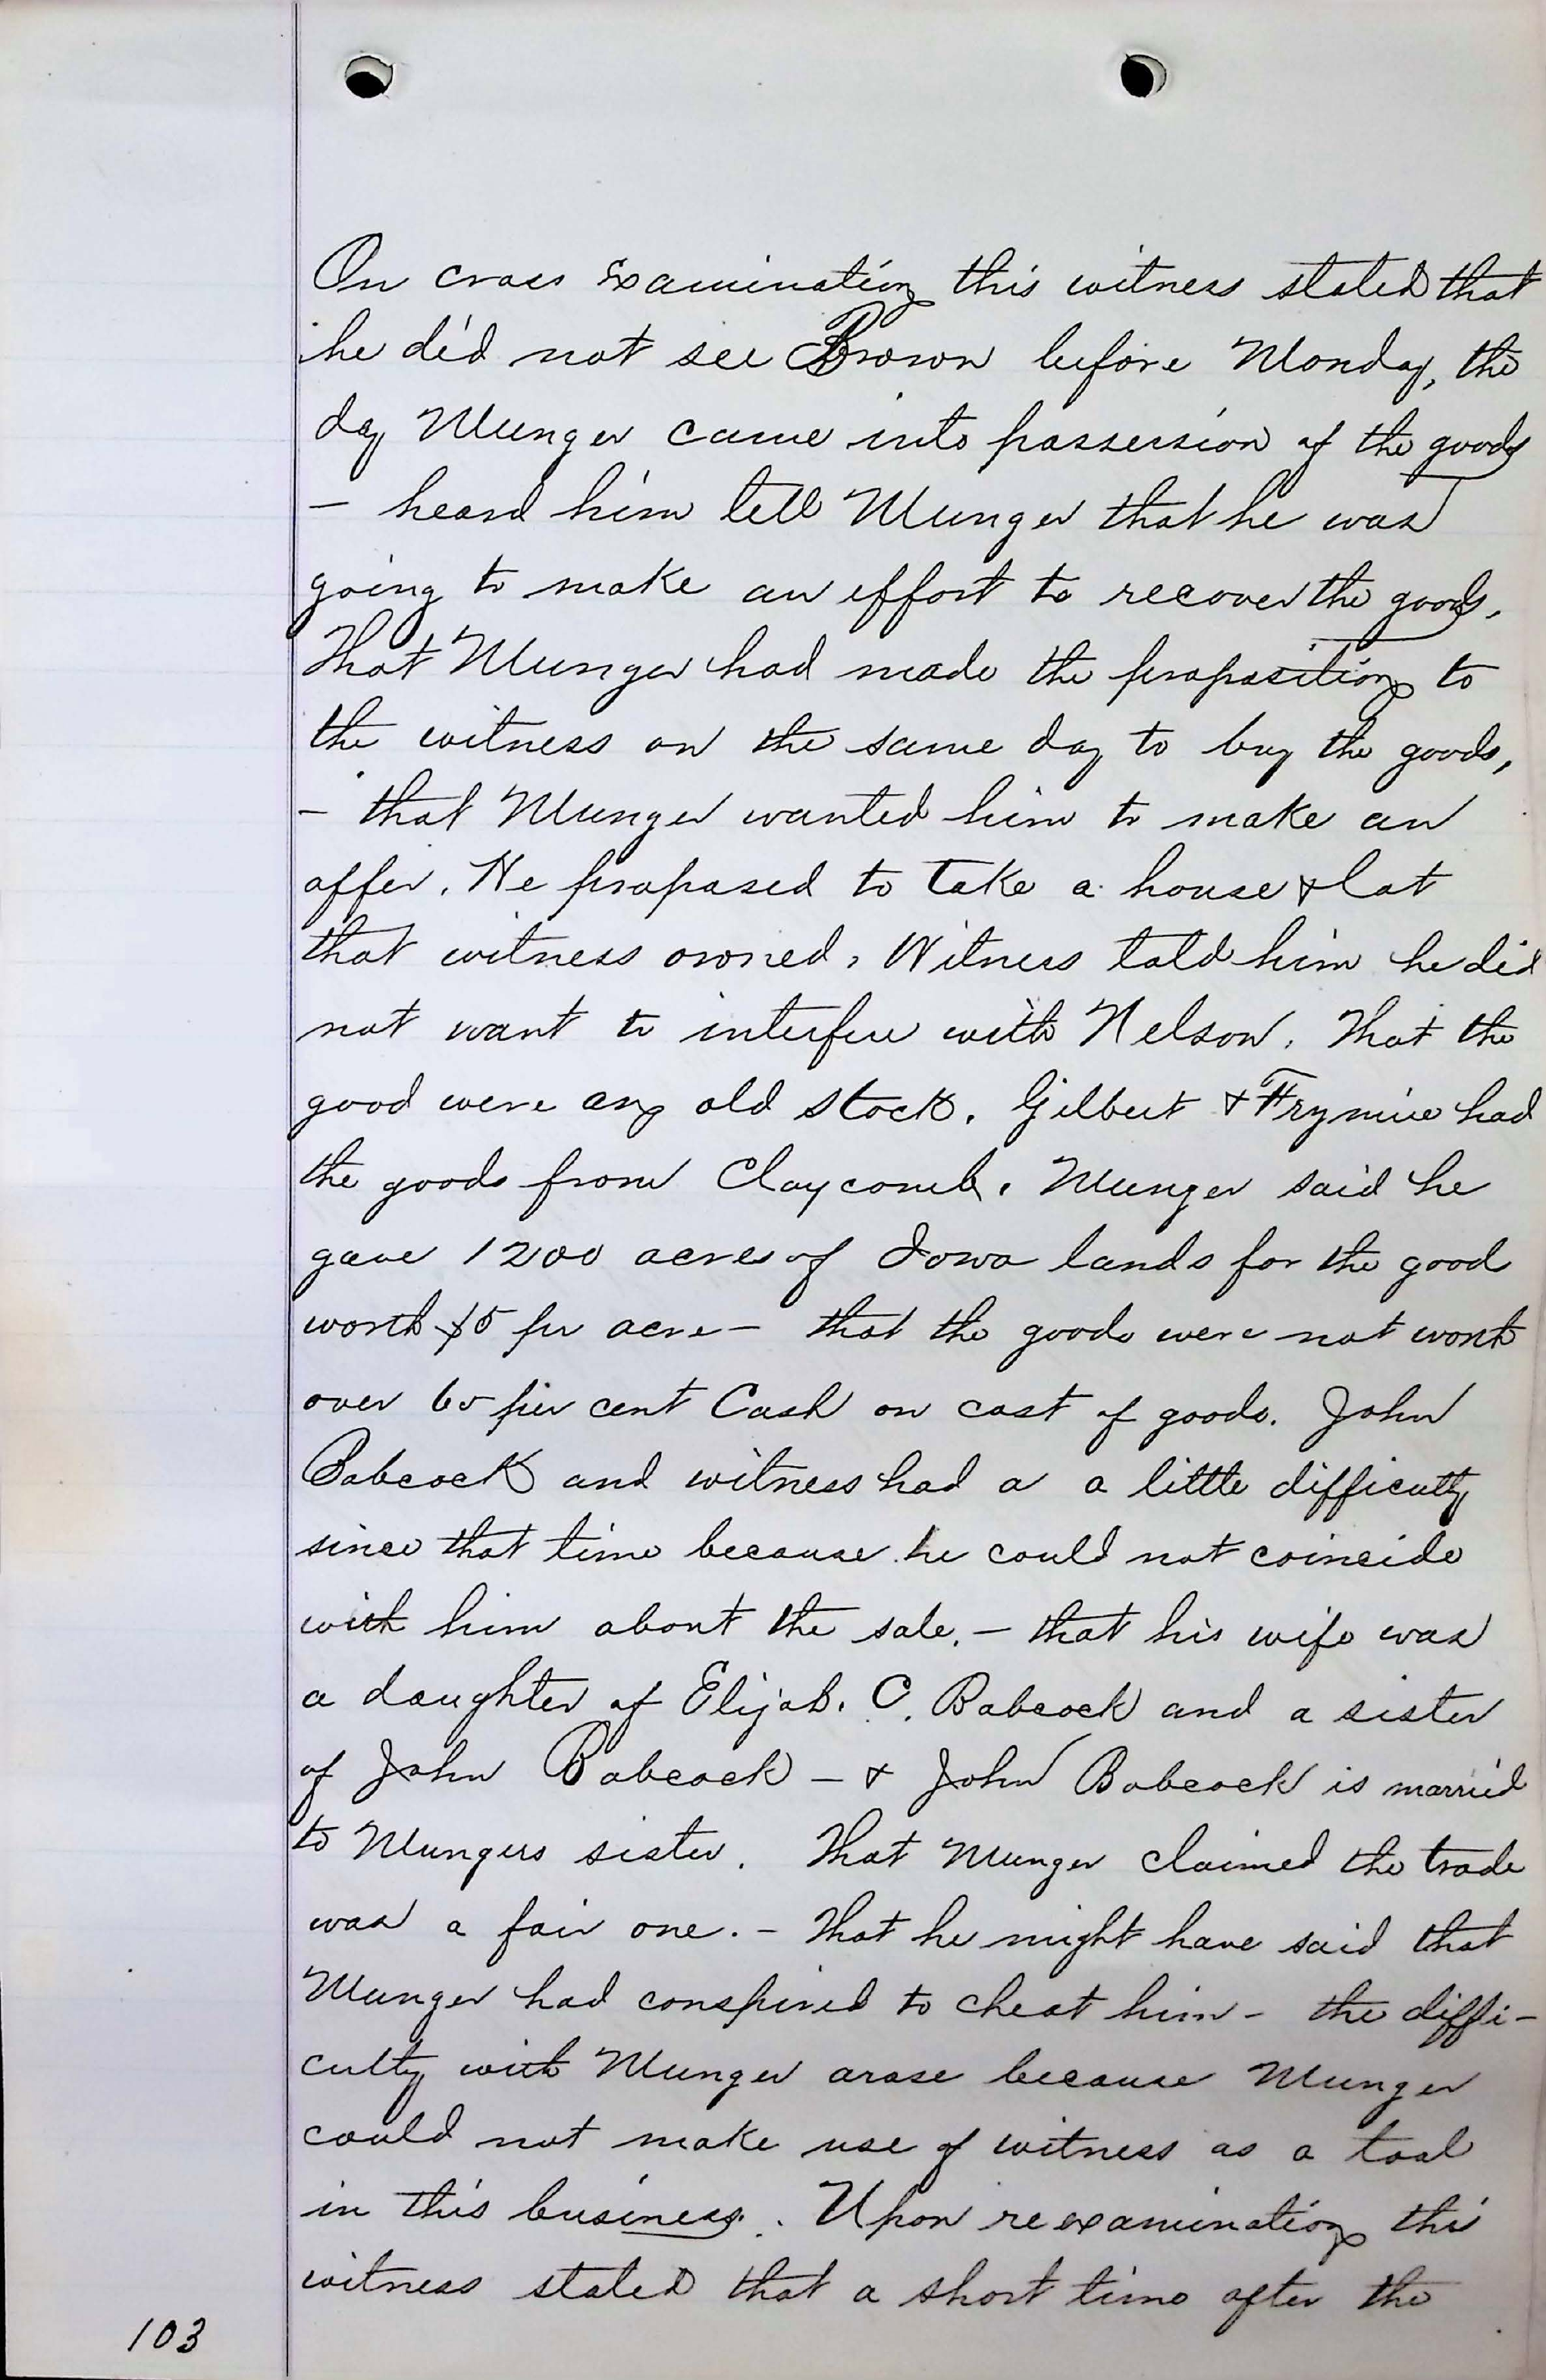 On cross examination this witness stated that
he did not see Brown before Monday, the
day Munger came into possession of the goods
— heard him tell Munger that he was
going to make an effort to recover the goods.
That Munger had made the proposition to
the witness on the same day to buy the goods,
— that Munger wanted him to make an
offer. He proposed to take a house & lot
that witness owned. Witness told him he did
not want to interfere with Nelson. That the
good were any old stock. Gilbert & Frymire had
the goods from Claycomb. Munger said he
gave 1200 acres of Iowa lands for the good
worth $5 per acre — that the goods were not worth
over 60 per cent Cash on cost of goods. John
Babcock and witness had a a little difficulty
since that time because he could not coincide
with him about the sale. — that his wife was
a daughter of Elijah. C. Babcock and a sister
of John Babcock — & John Babcock is married
to Mungers sister. That Munger claimed the trade
was a fair one. — That he might have said that
Munger had conspired to cheat him — the diffi-
culty with Munger arose because Munger
could not make use of witness as a tool
in this business. Upon reexamination this
witness stated that a short time after the
103